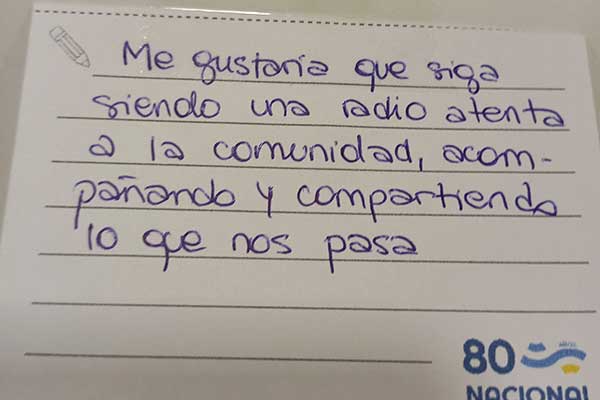 Me gustaría que siga
siendo una radio atenta
a la comunidad, acom-
pañando y compartiendo
lo que nos pasa
80
NACIONAL